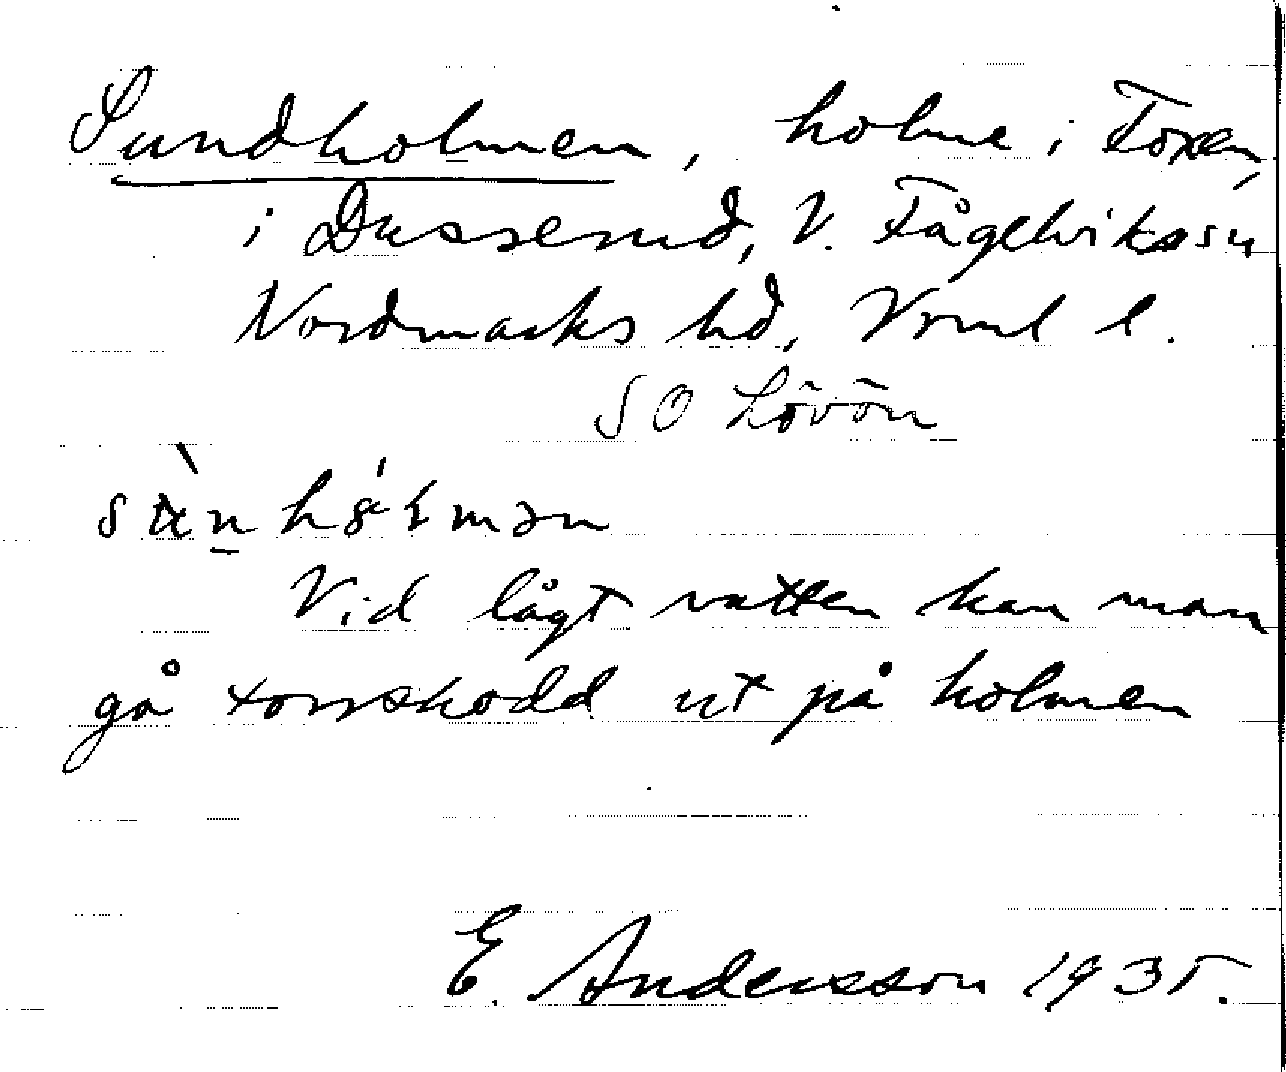 Sundholmen, holme i Foxen,
i Dusserud, V. Fågelvikssn
Nordmarks hd, Vrml l.
SO Lövön
Vid lågt vatten kan man
gå torrskodd ut på holmen
E. Andersson 1935.